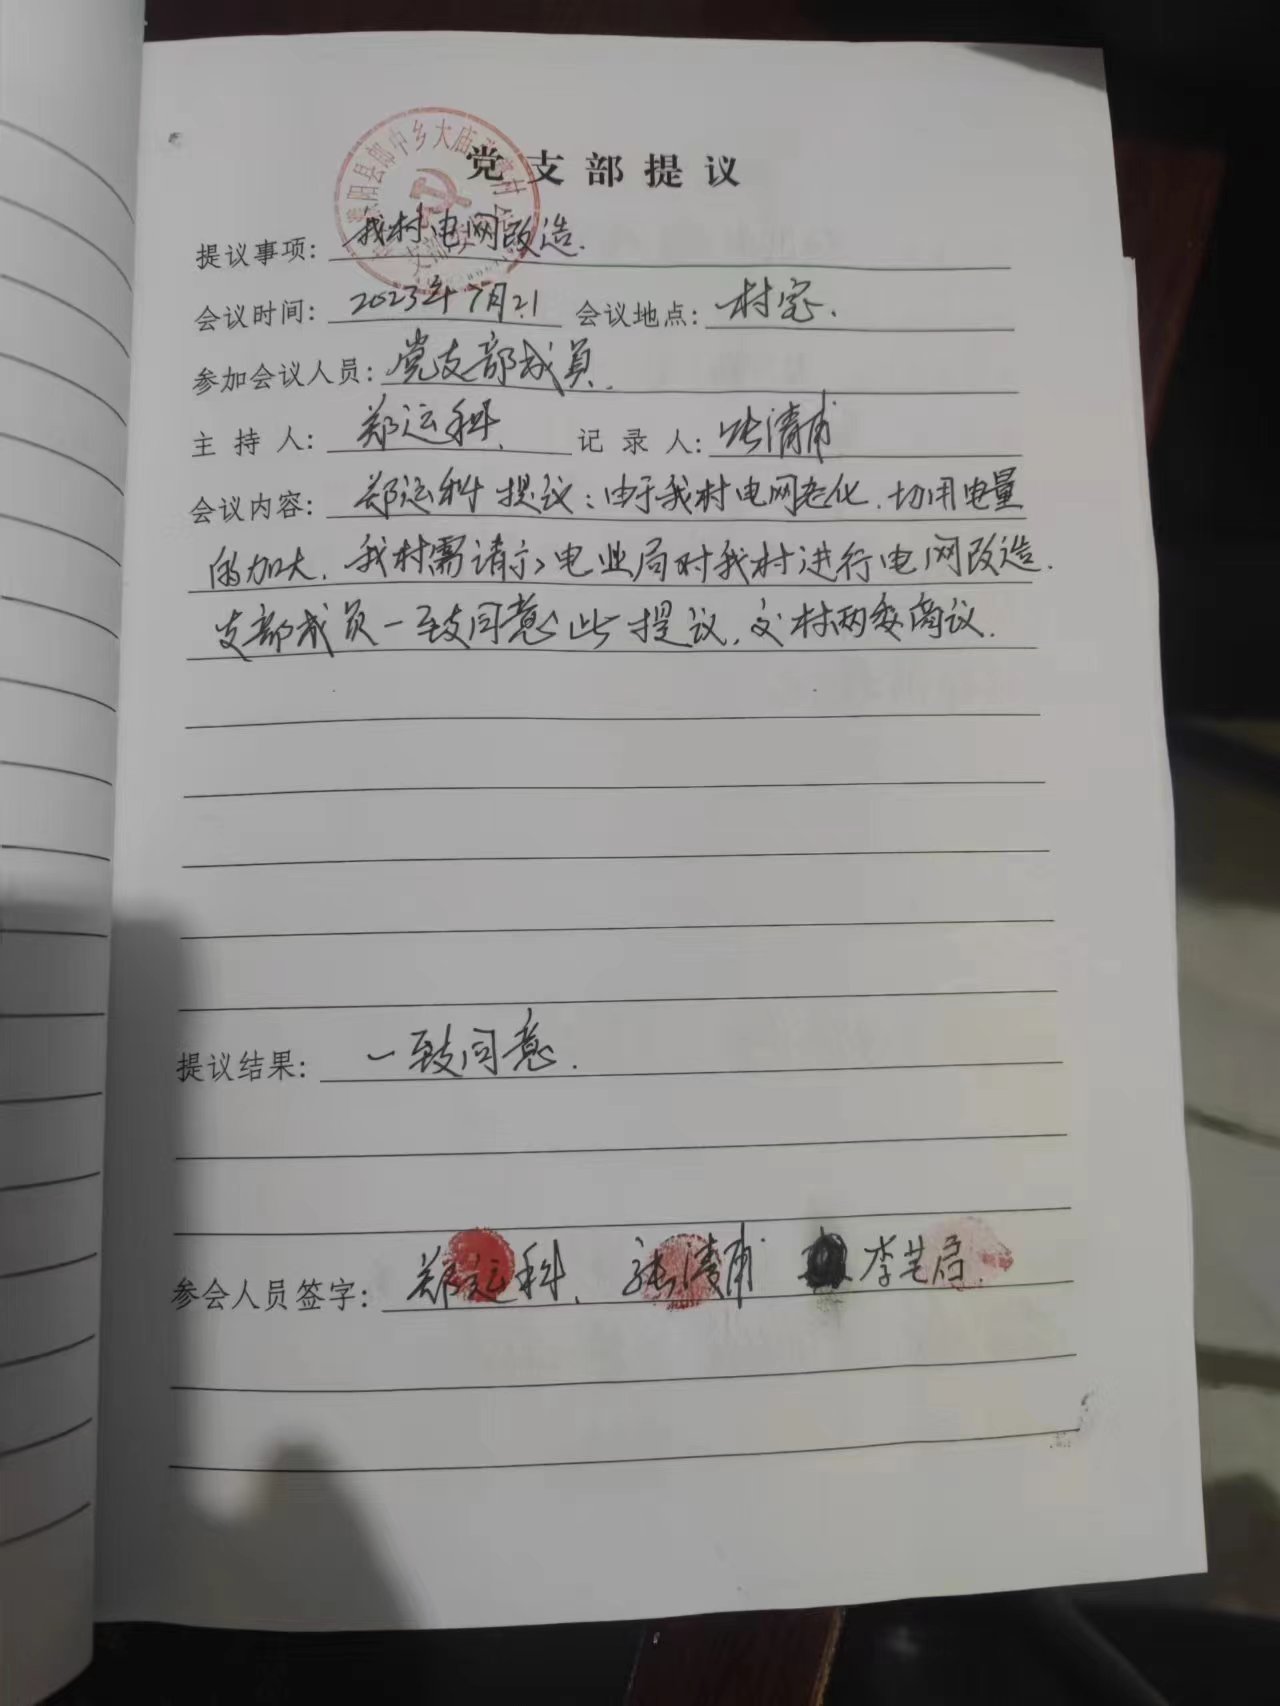 党支部提议
提议事项: 我村电网改造.
会议时间: 2023年7月21 会议地点: 村室.
参加会议人员: 党支部成员.
主持人: 郑运科. 记录人: 张清甫
会议内容: 郑运科提议:由于我村电网老化.切用电量
的加大.我村需请示电业局对我村进行电网改造.
支部成员一致同意此提议,交村两委商议.
提议结果: 一致同意.
参会人员签字: 郑运科. 张清甫 李芝启.